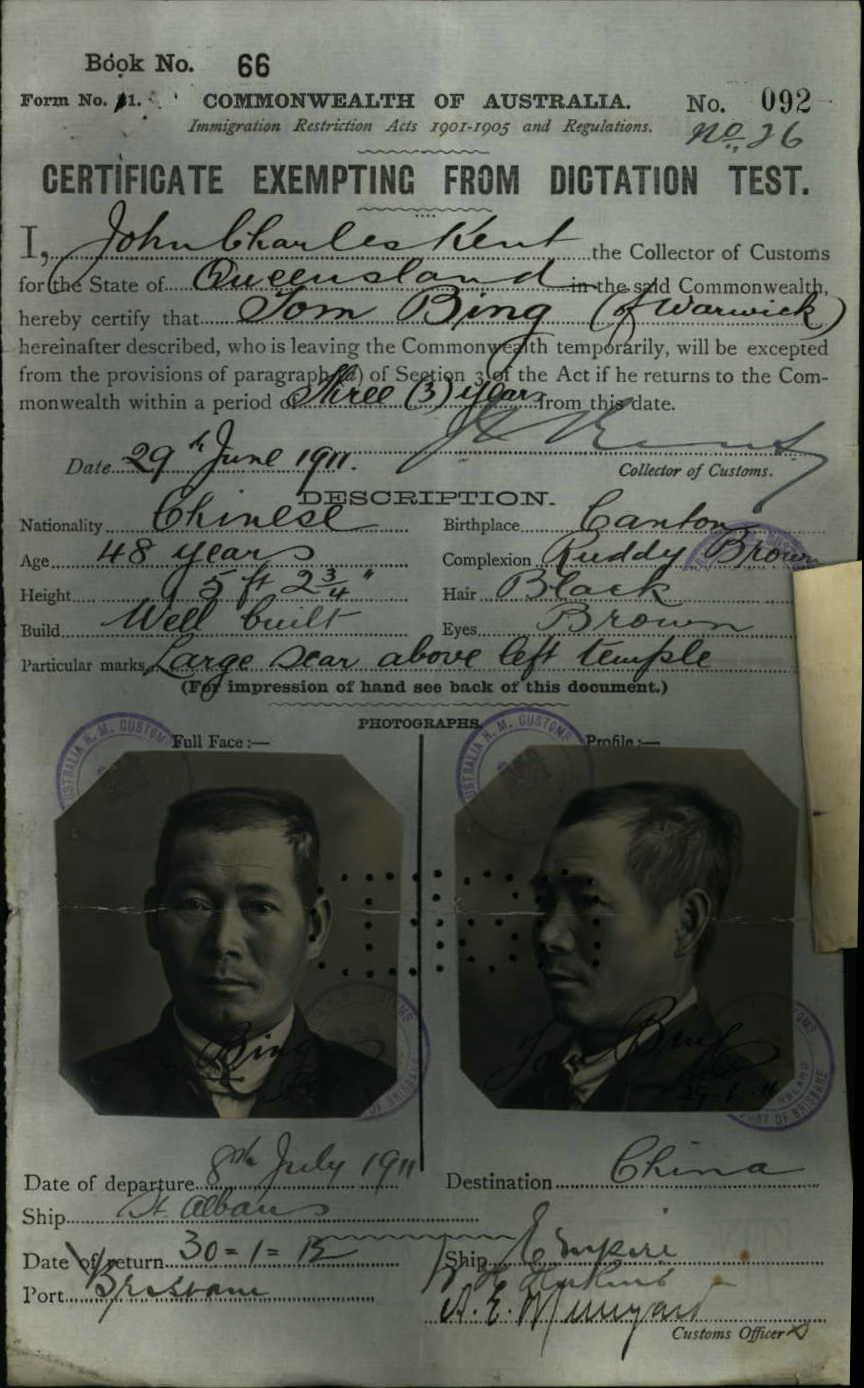 Book No. 66
Form No. 21. COMMONWEALTH OF AUSTRALIA. No. 092
Immigration Restriction Acts 1901-1905 and Regulations. No. 26
CERTIFICATE EXEMPTING FROM DICTATION TEST.
I, John Charles Kent the Collector of Customs
for the State of Queensland in the said Commonwealth,
hereby certify that Tom Bing (of Warwick)
hereinafter described, who is leaving the Commonwealth temporarily, will be excepted
from the provisions of paragraph (a) of Section 3 of the Act if he returns to the Com-
monwealth within a period of Three (3) years from this date.
Date 29th June 1911.
Collector of Customs.
DESCRIPTION.
Nationality Chinese Birthplace Canton
Age 48 years Complexion Ruddy Brown
Height 5 ft 2 3/4" Hair Black
Build Well built Eyes Brown
Particular marks Large scar above left temple
(For impression of hand see back of this document.)
PHOTOGRAPHS.
Full Face :— Profile :—
AUSTRALIA H. M. CUSTOMS
AUSTRALIA H. M. CUSTOMS
Bing
Tom Bing
PORT OF BRISBANE
Date of departure 8th July 1911 Destination China
Ship St Albans
Date of return 30=1=12 Ship Empire
Port Brisbane
Customs Officer